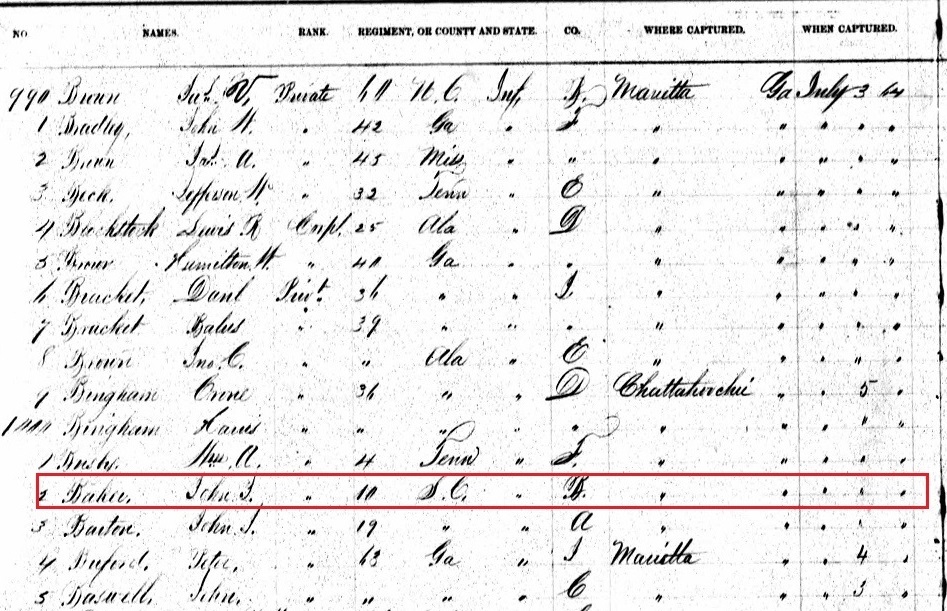 NO NAMES. RANK. REGIMENT, OR COUNTY AND STATE. CO. WHERE CAPTURED. WHEN CAPTURED.
990 Brown Jas. V. Private 60 N.C. Inf. D. Marietta Ga July 3 64
1 Bradley, John W. " 42 Ga " F " " " " "
2 Brown Jas. A. " 45 Miss " " " " " " "
3 Beck. Jefferson W. " 32 Tenn " E " " " " "
4 Lewis R Corpl. 25 Ala " D " " " " "
5 Brown Hamilton W. " 40 Ga " " " " " " "
6 Bracket, Danl Privt. 36 " " I " " " " "
7 Bracket Balus " 39 " " " " " " " "
8 Brown Jno. C. " " Ala " E " " " " "
9 Bingham " 36 " " D Chattahoochie " " 5 "
1000 Bingham " " " " " " " " " "
1 Busby. Wm. A. " 4 Tenn " F. " " " " "
2 Baker, John " 10 S.C. " B. " " " " "
3 Barton, John " 19 " " A " " " " "
4 Buford, Peter, " 63 Ga " I Marietta " " 4 "
5 Baswell, John, " " " " C " " " 3 "